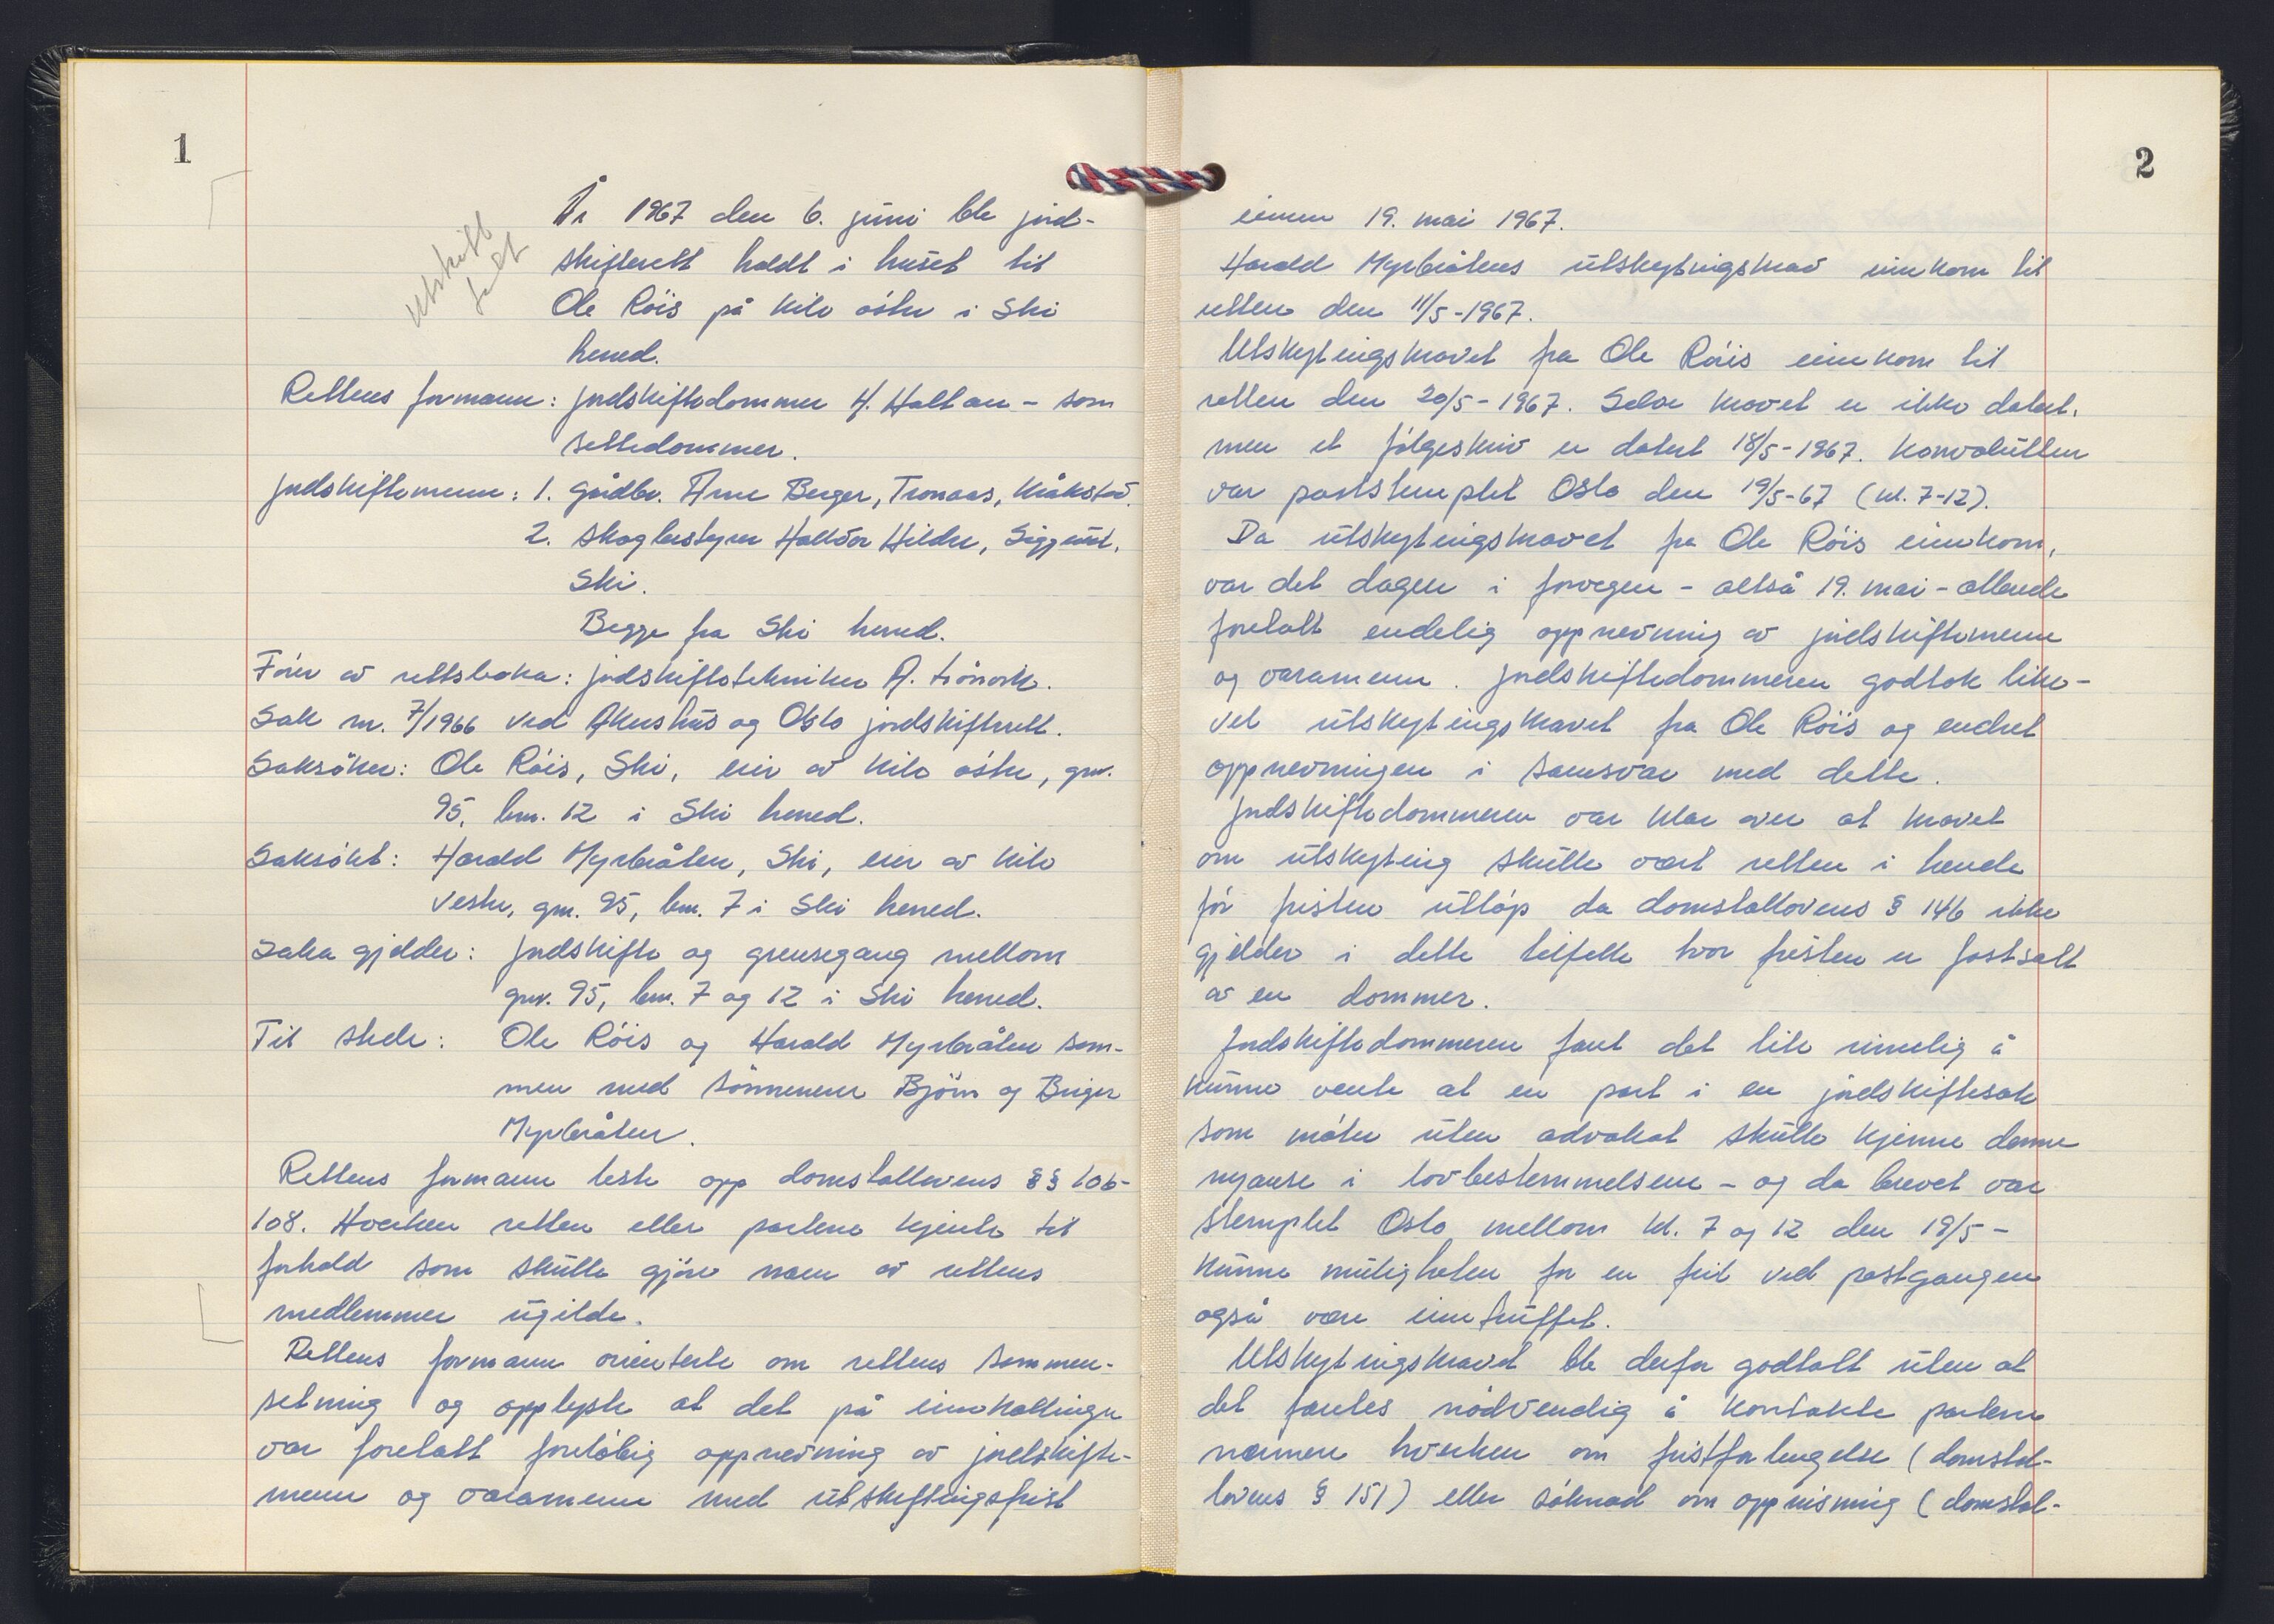 1
Utskrift
År 1967 den 6. juni ble jord-
skifterett holdt i huset til
Ole Röis på Kilo östre i Ski
herred.
Rettens formann: jordskiftedommer H. Haltan - som
settedommer.
Jordskiftemenn: 1. Gårdbr. Arne Berger, Tronaas, Kråkstad.
2. Skogbestyrer Halldor Hildre, Siggerud,
Ski.
Begge fra Ski herred.
Förer av rettsboka: jordskiftetekniker A.
Sak nr. 7/1966 ved Akershus og Oslo jordskifterett.
Saksöker: Ole Röis, Ski, eier av Kilo östre, gnr.
95, bnr. 12 i Ski herred.
Saksökt: Harald Myrbråten, Ski, eier av Kilo
vestre, gnr. 95, bnr. 7 i Ski herred.
Saka gjelder: Jordskifte og grensegang mellom
gnr. 95, bnr. 7 og 12 i Ski herred.
Til stede: Ole Röis og Harald Myrbråten sam-
men med sönnenene Björn og Birger
Myrbråten.
Rettens formann leste opp domstollovens §§ 106-
108. Hverken retten eller partene kjente til
forhold som skulle gjöre noen av rettens
medlemmer ugilde.
Rettens formann orienterte om rettens sammen-
setning og opplyste at det på innkallingen
var foretatt foreløbig oppnevning av jordskifte-
menn og varamenn med utskytingsfrist
2
innen 19. mai 1967.
Harald Myrbråtens utskytingskrav innkom til
retten den 11/5-1967.
Utskytingskravet fra Ole Röis innkom til
retten den 20/5-1967. Selve kravet er ikke datert,
men et fölgeskriv er datert 18/5-1967. Konvolutten
var poststemplet Oslo den 19/5-67 (kl. 7-12).
Da utskytingskravet fra Ole Röis innkom,
var det dagen i forvegen - altså 19. mai - allerede
foretatt endelig oppnevning av jordskiftemenn
og varamenn. Jordskiftedommeren godtok like-
vel utskytingskravet fra Ole Röis og endret
oppnevningen i samsvar med dette.
Jordskiftedommeren var klar over at kravet
om utskyting skulle vært retten i hende
för fristen utlöp da domstollovens § 146 ikke
gjelder i dette tilfelle hvor fristen er fastsatt
av en dommer.
Jordskiftedommeren fant det lite rimelig å
kunne vente at en part i en jordskiftesak
som möter uten advokat skulle kjenne denne
nyanse i lovbestemmelsene - og da brevet var
stemplet Oslo mellom kl. 7 og 12 den 19/5 -
kunne muligheten for en feil ved postgangen
også være inntruffet.
Utskytingskravet ble derfor godtatt uten at
det fantes nödvendig å kontakte partene
nærmere hverken om fristforlengelse (domstol-
lovens § 151) eller söknad om oppreisning (domstol-